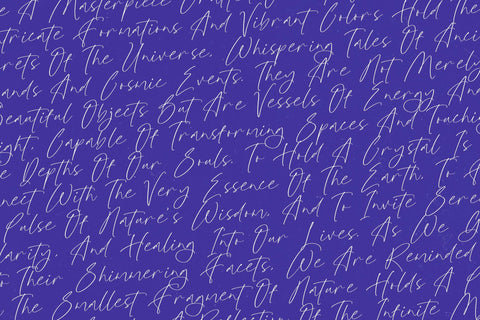 A Masterpiece
tricate Formations And Vibrant Colors Hold The
rets Of The Universe, Whispering Tales Of Anci
ands And Cosmic Events. They Are Not Merely
Beautiful Objects But Are Vessels Of Energy And
ight, Capable Of Transforming Spaces And Touching
e Depths Of Our Souls. To Hold A Crystal Is
nect With The Very Essence Of The Earth, To
Pulse Of Nature's Wisdom, And To Invite Sere
larity, And Healing Into Our Lives. As We G
o Their Shimmering Facets, We Are Reminded
The Smallest Fragment Of Nature Holds A
A Reflection Of The Infinite M